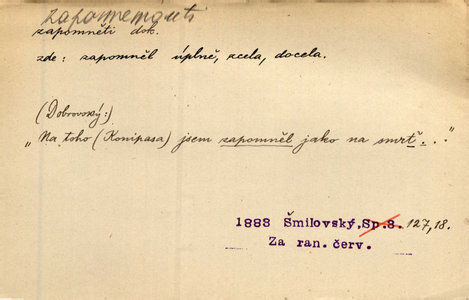 zapomenouti
zapomněti dok.
zde: zapomněl úplně, zcela, docela.
(Dobrovský:)
"Na toho (Konipasa) jsem zapomněl jako na smrť..."
1883 Šmilovský, Sp.8. 127,18.
Za ran. červ.